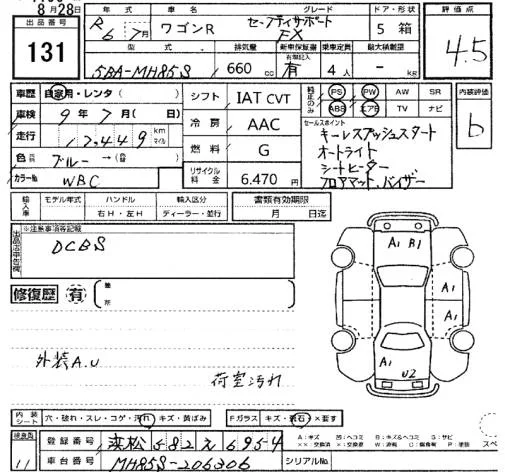 8月28日
出品番号
131
年式 車名 グレード ドア・形状 評価点
R6 7月 ワゴンR セーフティサポート FX 5 箱 4.5
型式 排気量 新車保証書 乗車定員 最大積載量
有無記入
5BA-MH85S 660 cc 有 4人 - kg
車歴 自家用・レンタ( ) シフト IAT CVT 純正のみ PS PW AW SR 内装評価
ABS エアB TV ナビ b
車検 9年7月( 日) 冷房 AAC セールスポイント
走行 12,449 km マイル 燃料 G キーレスプッシュスタート
オートライト
色 ブルー → (色替) シートヒーター
カラーNo WBC リサイクル料金 6,470円 フロアマット、バイザー
輸入車 モデル年式 ハンドル 輸入区分 書類有効期限
右H・左H ディーラー・並行 月 日迄
出品店申告欄 ※注意事項等記載
DCBS
修復歴 有 箇所
A1 B1
A1
A1
A1
U2
外装A.U
荷室汚れ
内装シート 穴・破れ・スレ・コゲ・汚れ キズ・黄ばみ Fガラス キズ・石 ×要す スペ
検査員 11 登録番号 浜松582え6954
車台番号 MH85S-206306 シリアルNo
A:キズ U:ヘコミ B:キズ&ヘコミ G:サビ